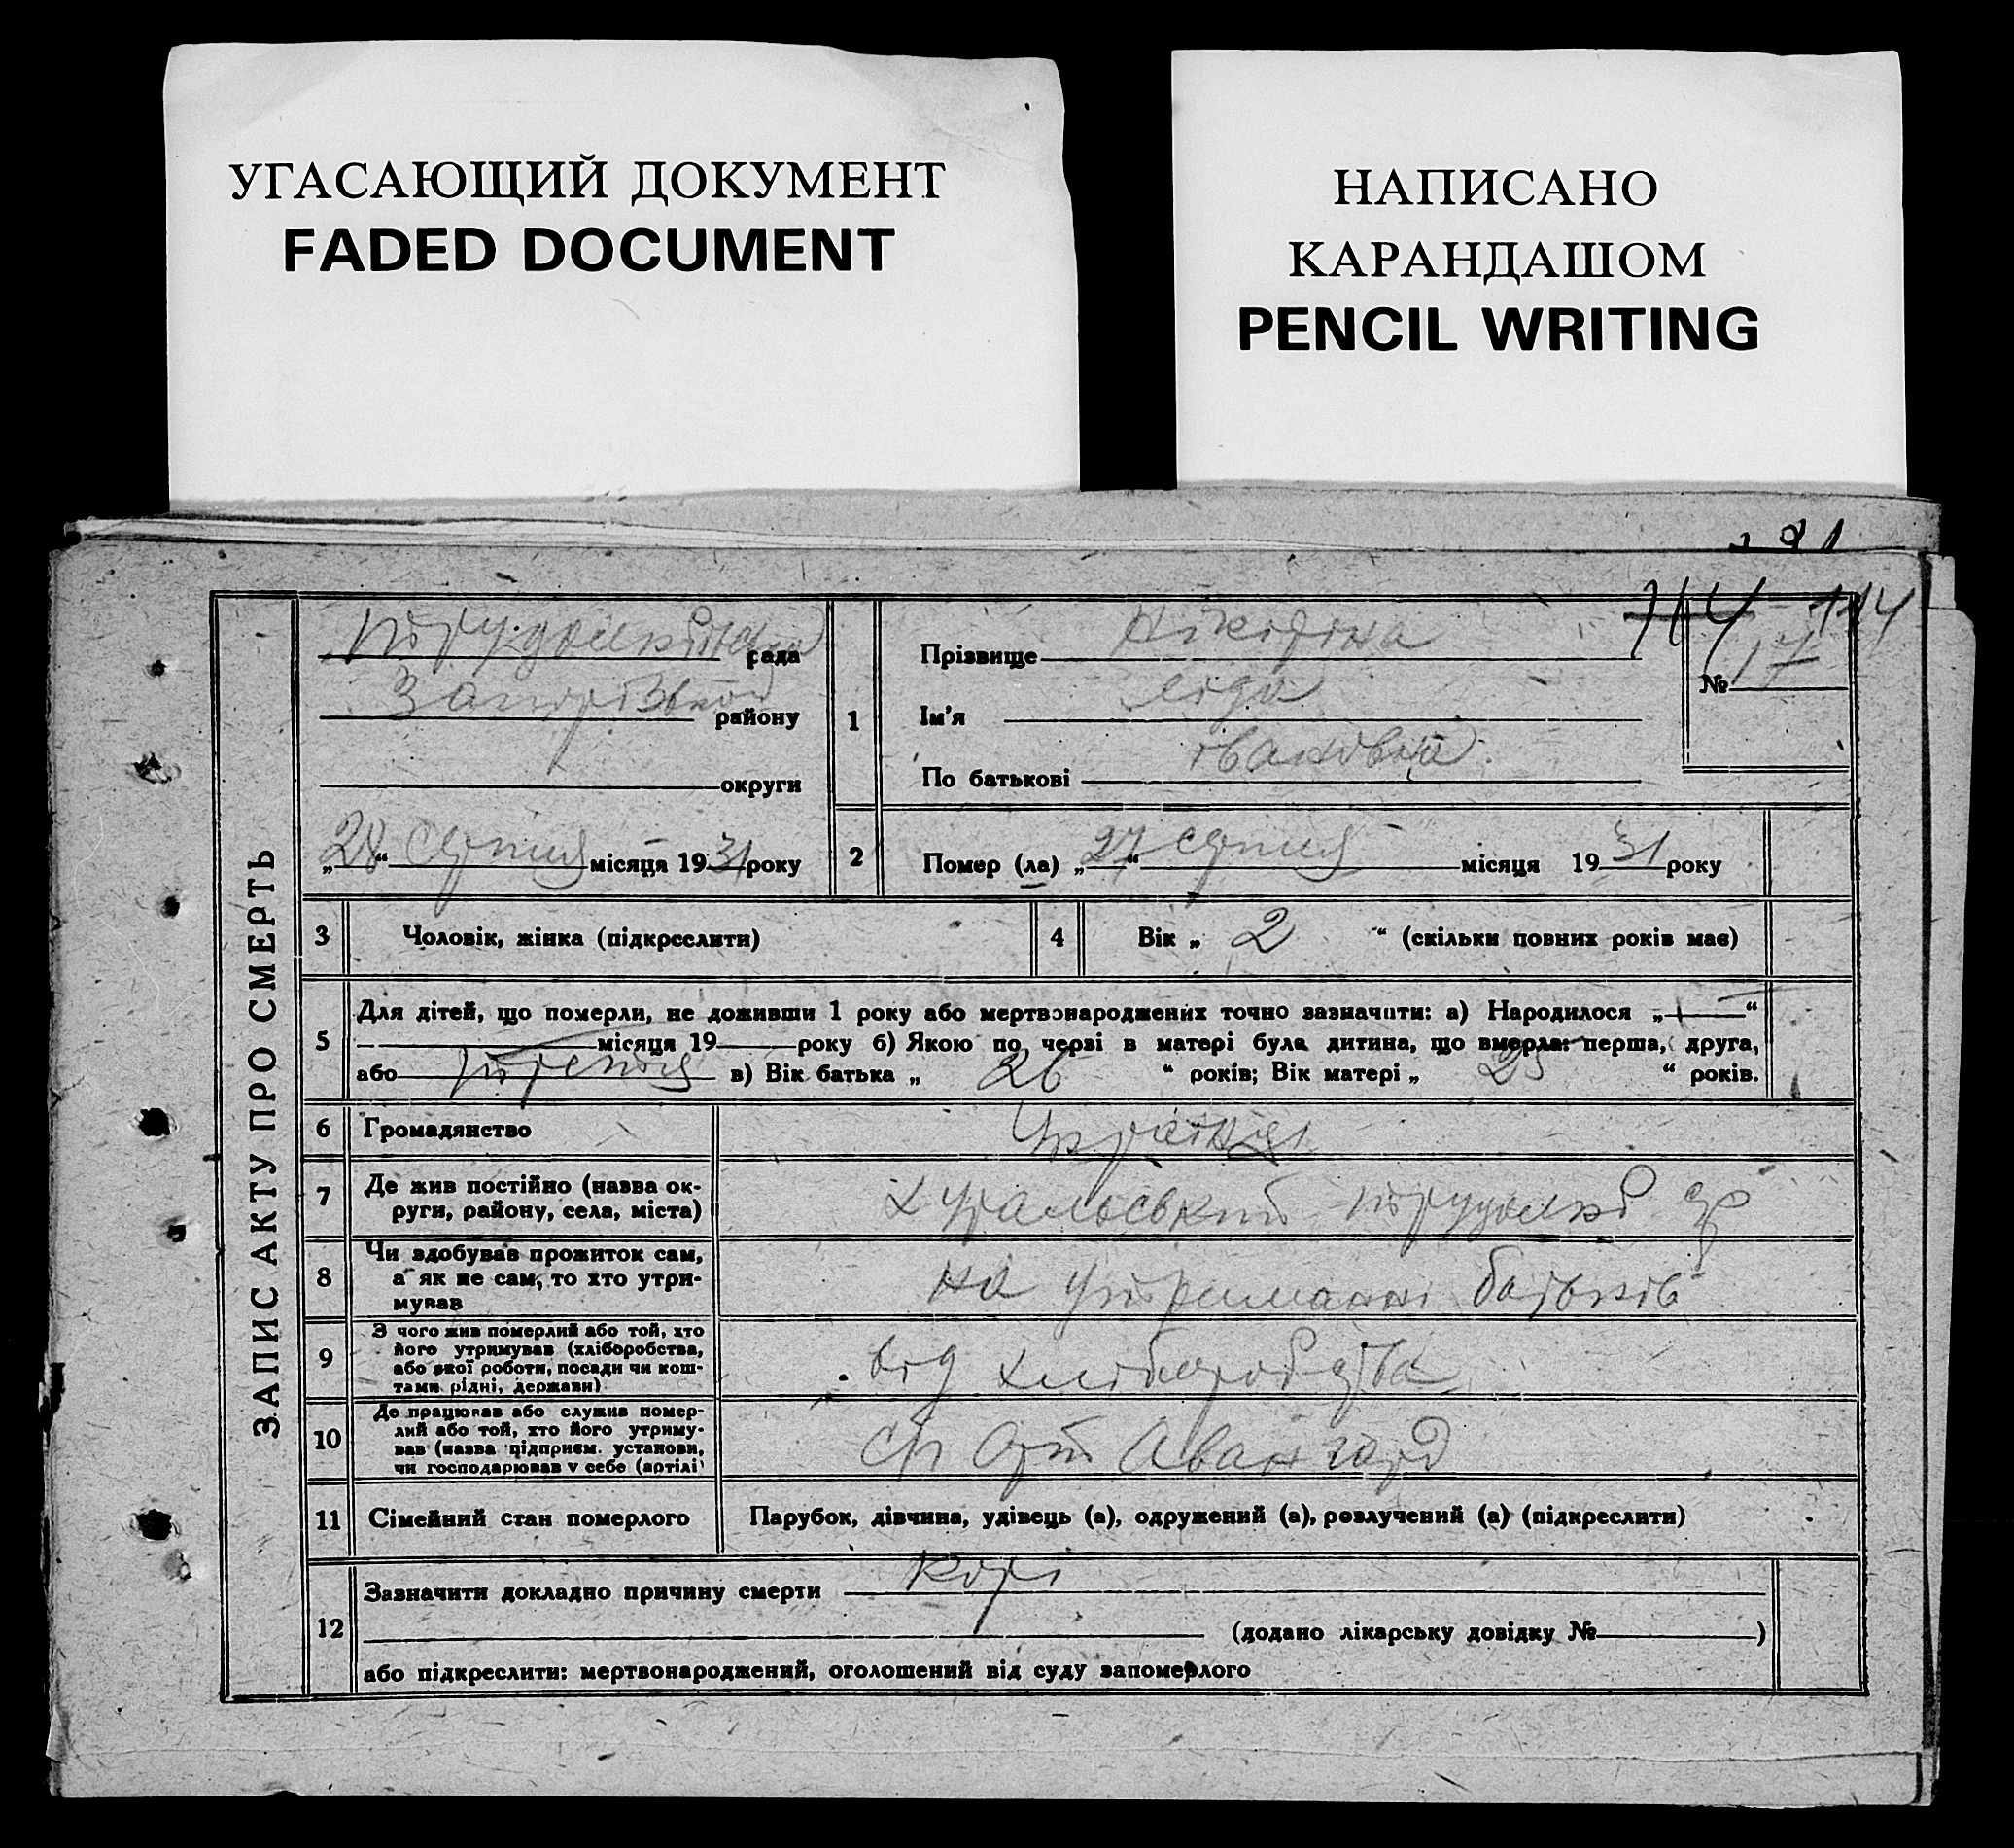 УГАСАЮЩИЙ ДОКУМЕНТ
FADED DOCUMENT
НАПИСАНО
КАРАНДАШОМ
PENCIL WRITING
114
114
ЗАПИС АКТУ ПРО СМЕРТЬ
рада
району
округи
„28“ серпня місяця 1931 року
1
Прізвище
Ім'я Ліда
По батькові Івановна
№ 17
2
Помер (ла) „27“ серпня місяця 1931 року
3
Чоловік, жінка (підкреслити)
4
Вік „ 2 “ (скільки повних років має)
5
Для дітей, що померли, не доживши 1 року або мертвонароджених точно зазначити: а) Народилося „ “
місяця 19 року б) Якою по черві в матері була дитина, що вмерла: перша, друга,
або в) Вік батька „ 26 “ років; Вік матері „ 25 “ років.
6
Громадянство
7
Де жив постійно (назва ок-
руги, району, села, міста)
8
Чи здобував прожиток сам,
а як не сам, то хто утри-
мував
на утриманні батьків
9
З чого жив померлий або той, хто
його утримував (хліборобства,
або якої роботи, посади чи кош-
тами рідні, держави)
від хліборобства
10
Де працював або служив помер-
лий або той, хто його утриму-
вав (назва підприєм. установи,
чи господарював у себе (артілі)
Авангард
11
Сімейний стан померлого
Парубок, дівчина, удівець (а), одружений (а), розлучений (а) (підкреслити)
12
Зазначити докладно причину смерти Корь
(додано лікарську довідку № )
або підкреслити: мертвонароджений, оголошений від суду запомерлого